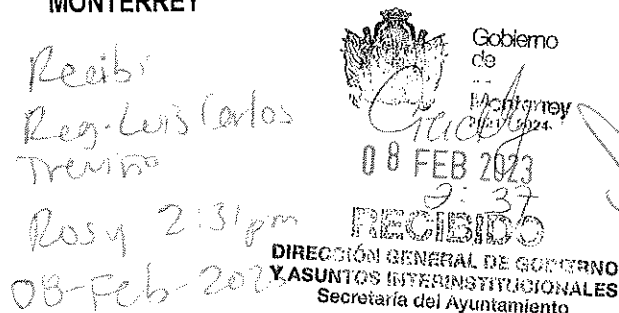 MONTERREY
Recibí
Reg. Luis Carlos
Treviño
Rosy 2:31 pm
08-Feb-2023
Gobierno
de
Monterrey
2021-2024
08 FEB 2023
2:37
RECIBIDO
DIRECCIÓN GENERAL DE GOBIERNO
Y ASUNTOS INTERINSTITUCIONALES
Secretaría del Ayuntamiento